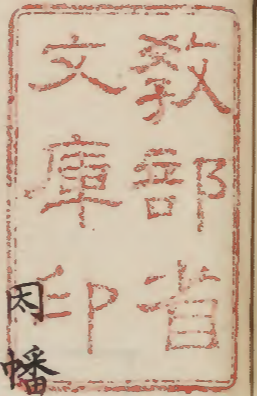 教部省
文庫印
因幡